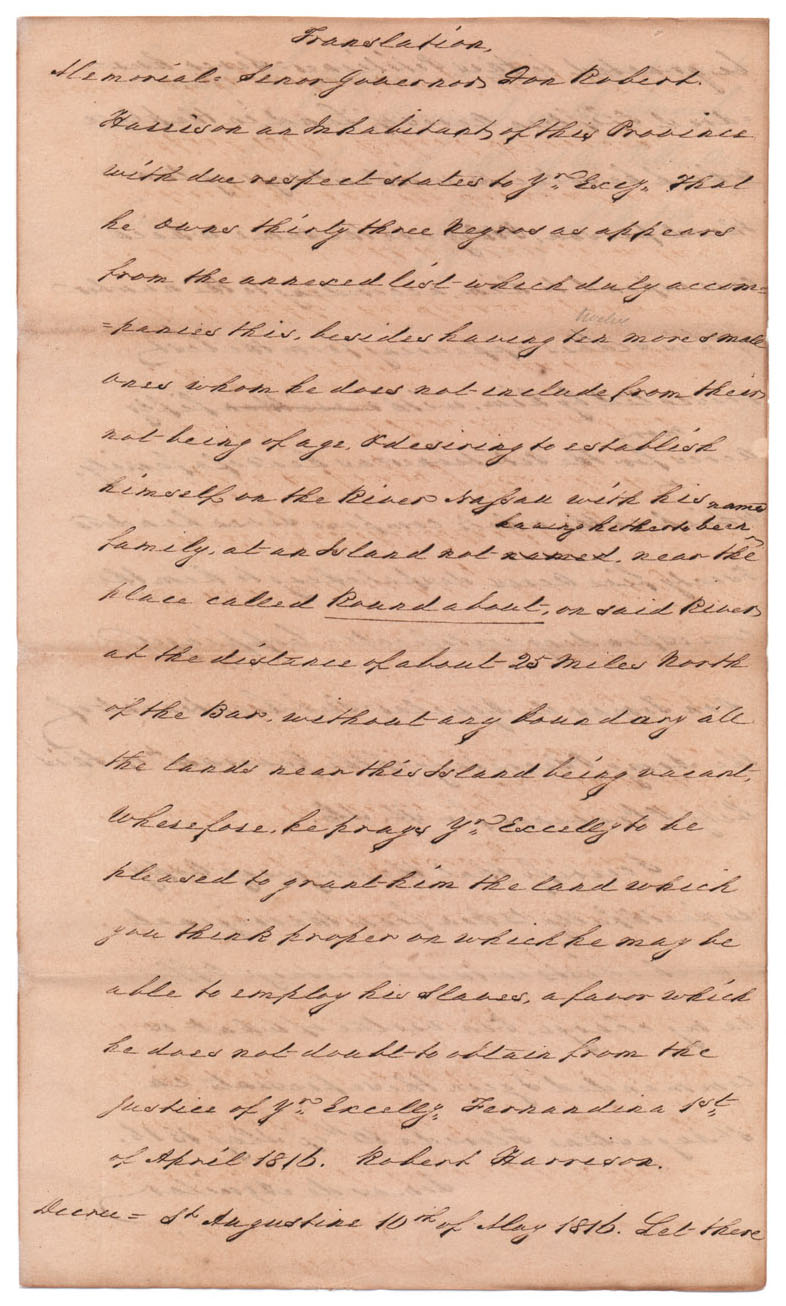 Translation,
Memorial = Senor Governor, Don Robert
Harrison an Inhabitant, of this Province
with due respect states to Yr. Excy. That
he owns thirty three Negros as appears
from the annexed list which duly accom=
=panies this, besides having ten more small
ones whom he does not include from their
not being of age, & desiring to establish
himself on the River Nassau with his name
having hitherto been
family, at an Island not named, near the
place called Roundabout, on said River
at the distance of about 25 Miles North
of the Bar, without any boundary all
the lands near this Island being vacant,
Wherefore, he prays Yr. Excelly to be
pleased to grant him the land which
you think proper on which he may be
able to employ his Slaves, a favor which
he does not doubt to obtain from the
Justice of Yr. Excelly. Fernandina 1st.
of April 1816. Robert Harrison.
Decree = St. Augustine 10th of May 1816. Let there